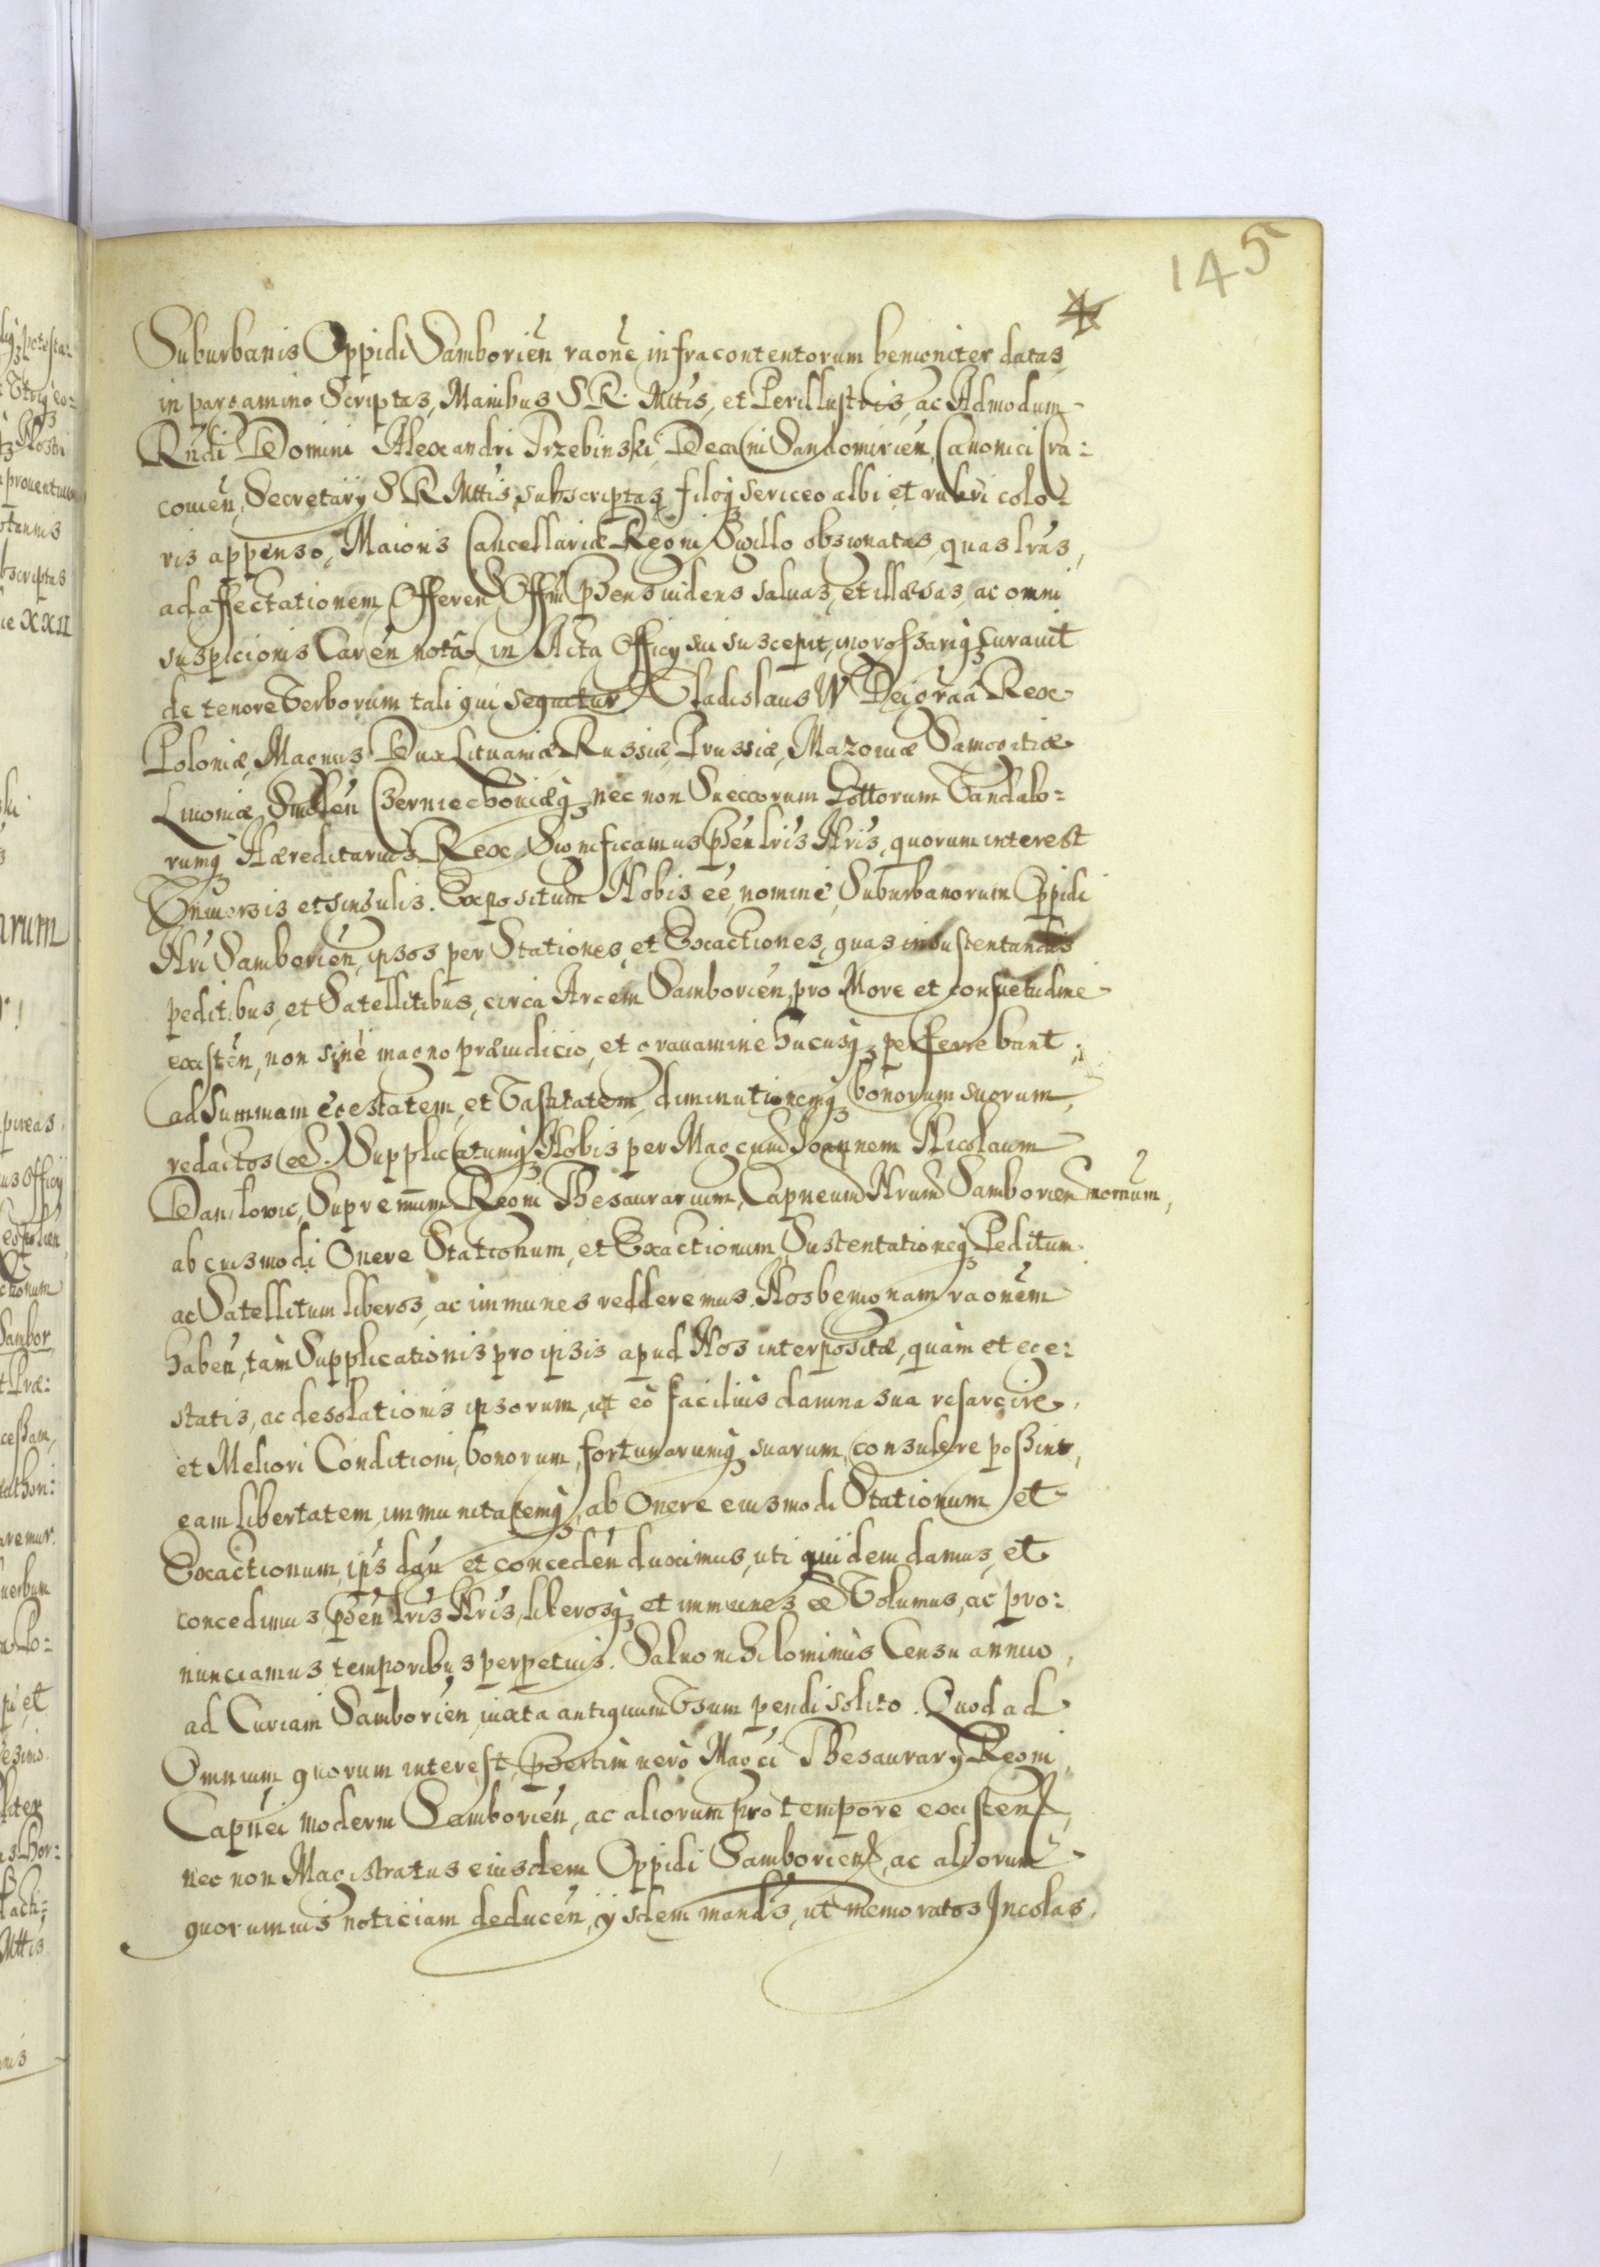 145
4
Suburbanis Oppidi Samborien̄ raōne infracontentorum benigniter datas,
in pargamino Scriptas, Manibus S R. Mttis, et Perillustris, ac Admodum
Rñdi Domini Alexandri Trzebinski Decani Sandomirien̄, Canonici Cra:
couien̄, Secretarÿ S R Mttis subscriptas, filoq sericeo albi et rubri colo:
ris appenso, Maioris Cancellariæ Regni Sigillo obsignatas, quas lr̄as,
ad affectationem Offeren̄ Offm̄ pn̄s videns saluas, et illæsas, ac omni
suspicionis caren̄ nota in Acta Officÿ sui suscepit, ingrossariq curauit
de tenore Verborum tali qui sequitur Vladislaus IV Dei gr̄aâ Rex
Poloniæ, Magnus Dux Lituaniæ Russiæ, Prussiæ, Mazouiæ Samogitiæ
Liuoniæ Smolen̄ Czerniechouiæq nec non Sueccorum Gottorum Vandalo:
rumq Hæreditarius Rex. Significamus pn̄tibus lr̄is Nr̄is, quorum interest
Vniuersis et singulis. Expositum Nobis eē, nominē Suburbanorum Oppidi
Nr̄i Samborien̄, ipsos per Stationes, et Exactiones, quas in sustentandis
peditibus, et Satellitibus, circa Arcem Samborien̄, pro More et consuetudine
existen̄, non sinē magno præiudicio, et grauamine hucusq perferrebant,
ad summam egestatem, et Vastitatem, diminutionemq bonorum suorum,
redactos eē. Supplicatumq Nobis per Mag̃cum Joannem Nicolaum
Danilowic, Supremum Regni Thesaurarium, Capneum Nrum Samborien̄
ab eiusmodi Onere Stationum, et Exactionum, Sustentationeq Peditum
ac Satellitum liberos, ac immunes redderemus. Nos benignam raōnem
haben̄, tàm Supplicationis pro ipsis apud Nos interpositæ, quàm et ege:
statis, ac desolationis ipsorum, ut eò facilius damna sua resarcire,
et Meliori Conditioni, bonorum, fortunarumq suarum, consulere possint,
eam libertatem, immunitatemq, ab Onere eiusmodi Stationum et
Exactionum, ip̄s dan̄ et conceden̄ duximus, uti quidem damus, et
concedimus, pn̄tibus lr̄is Nr̄is, liberosq et immunes eē Volumus, ac pro:
nunciamus temporibus perpetuis. Saluo nihilominus Censu annuo,
ad Curiam Samborien̄, iuxta antiquum Vsum pendi solito. Quod ad
Omnium quorum interest, p̄sertim verò Mag̃ci Thesaurarÿ Regni,
Capnei moderni Samborien̄, ac aliorum pro tempore existen̄,
nec non Magistratus eiusdem Oppidi Samborien̄, ac aliorum
quorumuis noticiam deducen̄, ÿsdem mand̄s, ut memoratos Incolas,